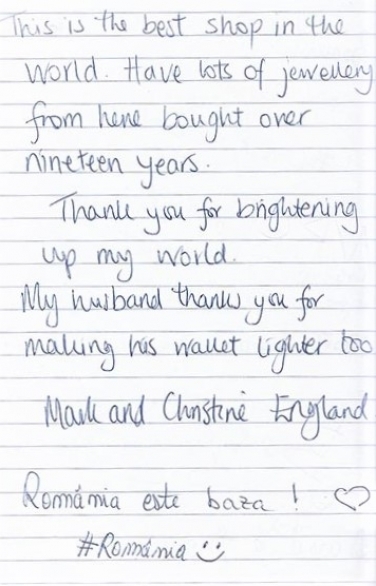 This is the best shop in the
world. Have lots of jewellery
from here bought over
nineteen years.
Thank you for brightening
up my world.
My husband thanks you for
making his wallet lighter too
Mark and Christine England
Românía este baza ! ♡
#Românía :)